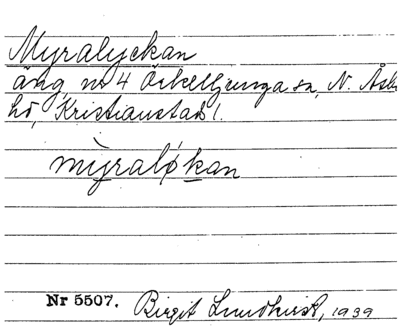 Myralyckan
äng, nr 4 Örkelljunga sn, N. Åsbo
hd, Kristianstads l.
mỳraløkan
Nr 5507. Birgit Lundkvist, 1939